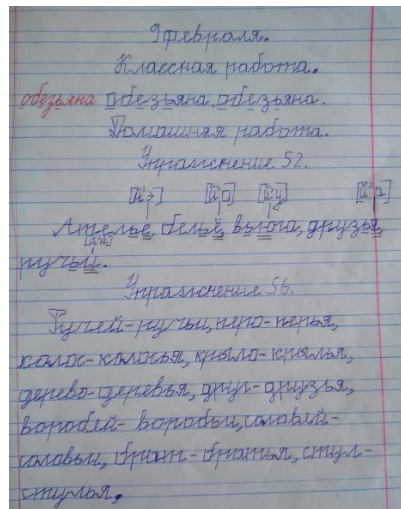 9 февраля.
Классная работа.
обезьяна обезьяна, обезьяна.
Домашняя работа.
Упражнение 52.
[й'э] [й'о] [й'у] [й'а]
Ателье, бельё, вьюга, друзья,
[й'и]
ручьи.
Упражнение 56.
Ручей-ручьи, перо-перья,
колос-колосья, крыло-крылья,
дерево-деревья, друг-друзья,
воробей-воробьи, соловей-
соловьи, брат-братья, стул-
стулья.